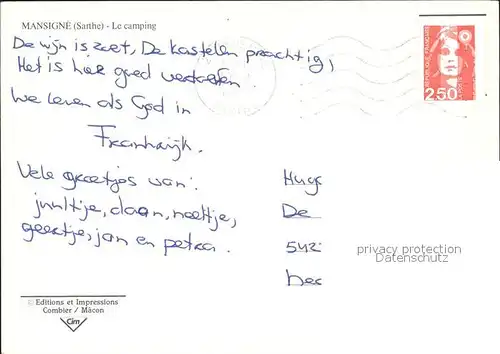 MANSIGNÉ (Sarthe) - Le camping
De wijn is zoet, De kastelen prachtig,
Het is hier goed vertoeven.
We leven als God in
Frankrijk.
Vele groetjes van:
daan, neeltje,
geertje, jan en petra.
Hugo
De
542
RÉPUBLIQUE FRANÇAISE
2,50
privacy protection
Datenschutz
© Editions et Impressions
Combier / Mâcon
Cim